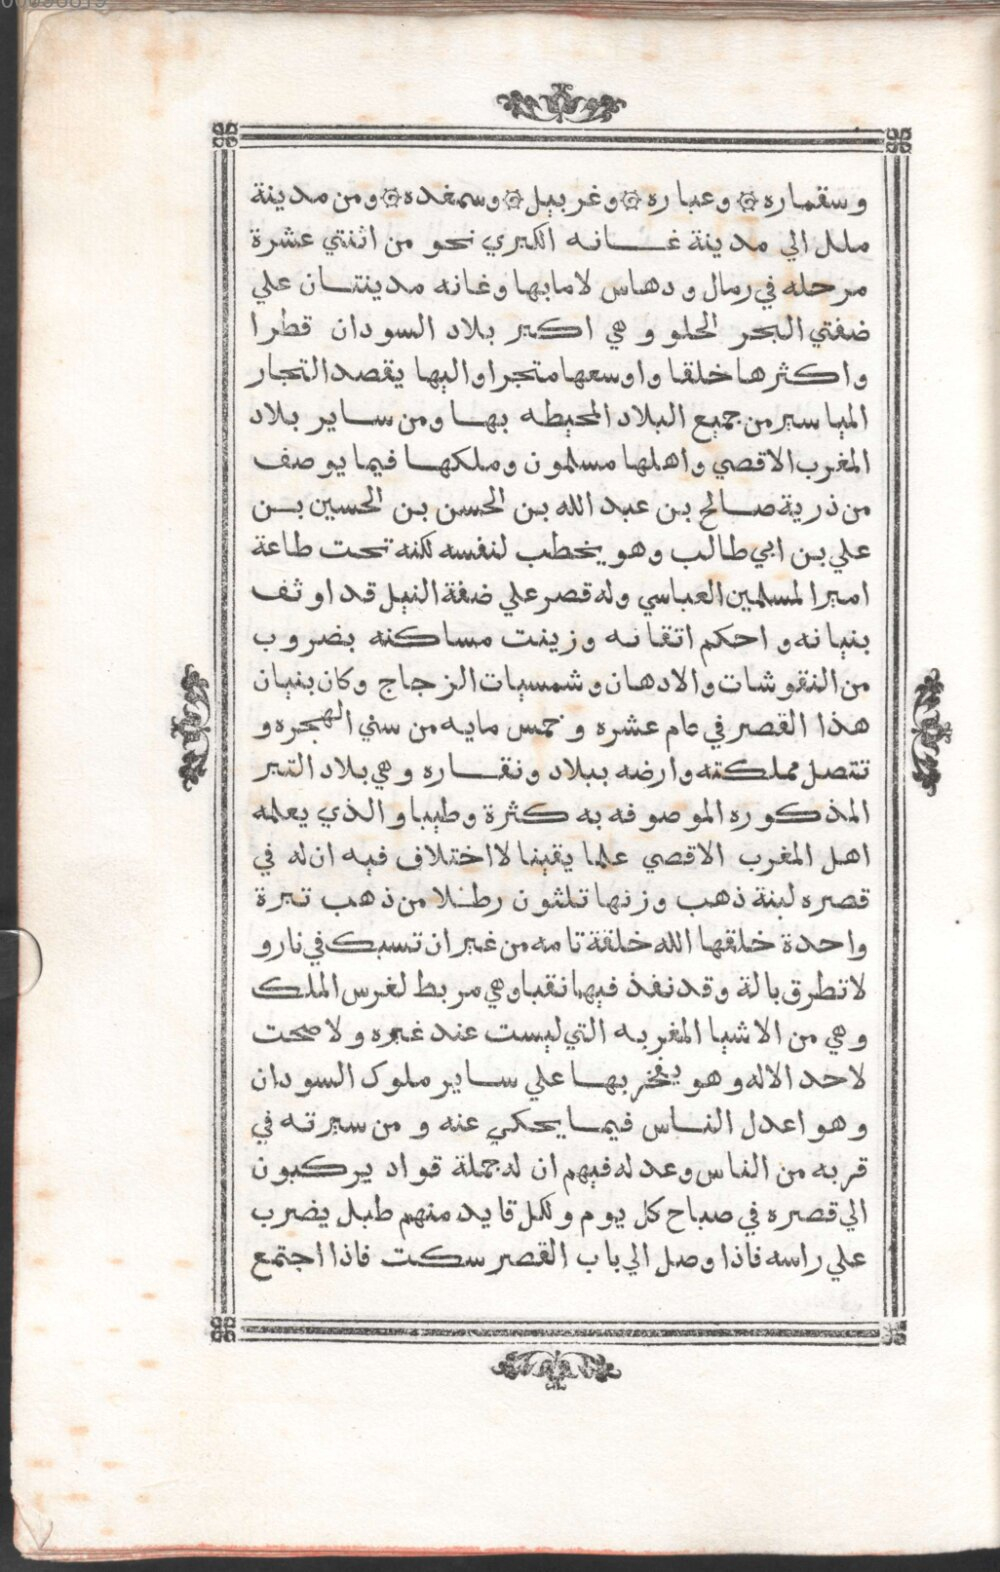 00036619
وسقماره ۞ وعباره ۞ وغربيل ۞ وسمغده ۞ ومن مدينة
ملل الي مدينة غانه الكبري نحو من اثنتي عشرة
مرحله في رمال ودهاس لامابها وغانه مدينتان علي
ضفتي البحر الحلو وهي اكبر بلاد السودان قطرا
واكثرها خلقا واوسعها متجرا واليها يقصد التجار
المياسير من جميع البلاد المحيطه بها ومن ساير بلاد
المغرب الاقصي واهلها مسلمون وملكها فيما يوصف
من ذرية صالح بن عبد الله بن الحسن بن الحسين بن
علي بن ابي طالب وهو يخطب لنفسه لكنه تحت طاعة
امير المسلمين العباسي وله قصر علي ضفة النيل قد اوثف
بنيانه واحكم اتقانه وزينت مساكنه بضروب
من النقوشات والادهان وشمسيات الزجاج وكان بنيان
هذا القصر في عام عشره وخمس مايه من سني الهجره و
تتصل مملكته وارضه ببلاد ونقاره وهي بلاد التبر
المذكوره الموصوفه به كثرة وطيبا والذي يعلمه
اهل المغرب الاقصي علما يقينا لا اختلاف فيه ان له في
قصره لبنة ذهب وزنها تلثون رطلا من ذهب تبرة
واحدة خلقها الله خلقة تامه من غير ان تسبك في نار و
لا تطرق بالة وقد نفذ فيها نقبا وهي مربط لغرس الملك
وهي من الاشيا المغربه التي ليست عند غيره ولا صحت
لاحد الاله وهو يفخر بها علي ساير ملوك السودان
وهو اعدل الناس فيما يحكي عنه ومن سيرته في
قربه من الناس وعدله فيهم ان له جملة قواد يركبون
الي قصره في صباح كل يوم ولكل قايد منهم طبل يضرب
علي راسه فاذا وصل الي باب القصر سكت فاذا اجتمع